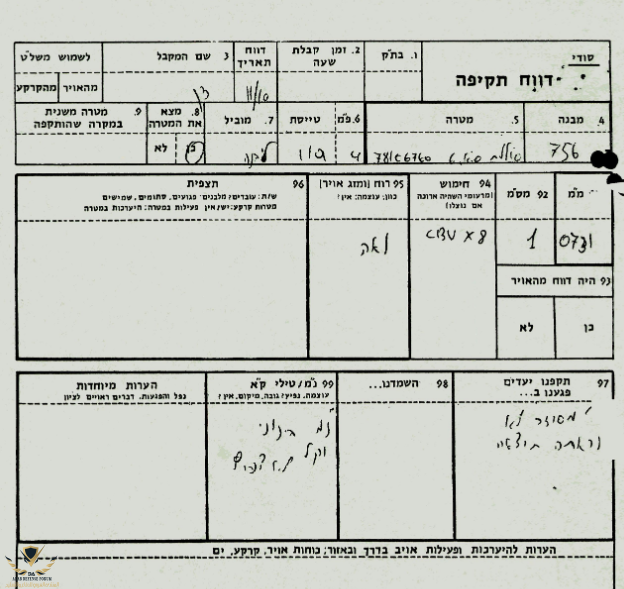 סודי
דווח תקיפה
1. בת"ק
2. זמן קבלת
שעה
דווח
תאריך
3 שם המקבל
לשמוש משל"ט
מהאויר
מהקרקע
10/11
4. מבנה
5. מטרה
6. פ"מ
טייסת
7. מוביל
8. מצא
את המטרה
כן
לא
9. מטרה משנית
במקרה שהותקפה
756
מ"מ
92 מס"מ
94 חימוש
(פרעומי השהיה ארוכה
אם נוצלו)
95 רוח [ומזג אויר]
כוון; עוצמה; אין?
96 תצפית
ש/ת: עוברים? מלבנים פגועים, סתומים, שמישים
מטרות קרקע: יש/אין פעילות במטרה; היערכות במטרה
0731
1
8 x CBU
נאה
93 היה דווח מהאויר
כן
לא
97 תקפנו יעדים
פגענו ב...
98 השמדנו...
99 נ"מ/טילי ק"א
עוצמה, נפיץ? גובה, מיקום, אין?
הערות מיוחדות
נפל והפגעות, דברים ראויים לציון
לא
תוצאה
נ"מ בינוני
וקל
הערות להיערכות ופעילות אויב בדרך ובאזור; כוחות אויר, קרקע, ים
ARAB DEFENSE FORUM